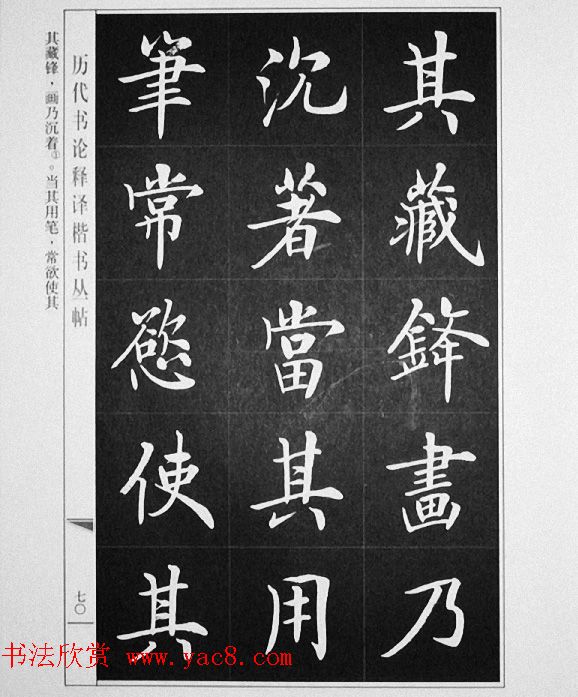 其藏鋒畫乃
沉著當其用
筆常慾使其
历代书论释译楷书丛帖
七〇
其藏锋，画乃沉着①。当其用笔，常欲使其
书法欣赏 www.yac8.com